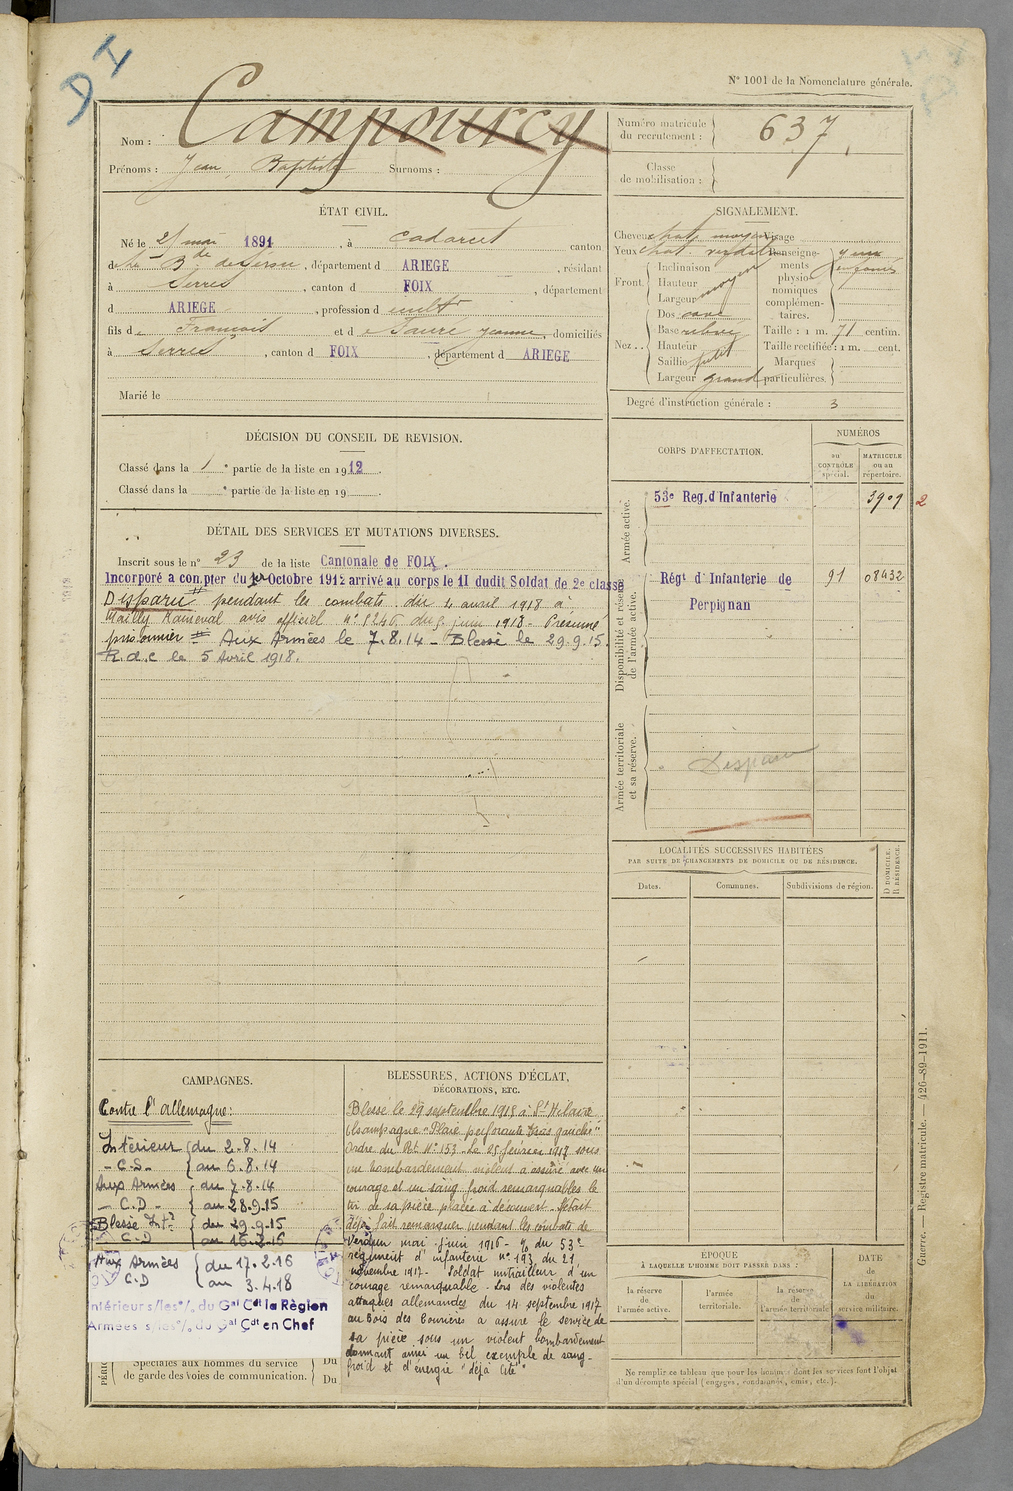 DI
N° 1001 de la Nomenclature générale.
Nom : Campourcy
Prénoms : Jean Baptiste Surnoms :
Numéro matricule du recrutement : 637
Classe de mobilisation :
ÉTAT CIVIL.
Né le mai 1891, à Cadarcet canton
de La B de Sérou, département d ARIEGE, résidant
à Serres, canton d FOIX, département
d ARIEGE, profession d cult
fils de François et de Faure Jeanne, domiciliés
à Serres, canton d FOIX, département d ARIEGE
Marié le
SIGNALEMENT.
Cheveux chat moyen Visage
Yeux chat.
Front. Inclinaison
Hauteur moyen
Largeur
Nez .. Dos cave
Base
Hauteur
Saillie petit
Largeur grand
Renseignements physionomiques complémentaires.
Taille : 1 m. 71 centim.
Taille rectifiée : 1 m. cent.
Marques particulières.
Degré d'instruction générale : 3
DÉCISION DU CONSEIL DE REVISION.
Classé dans la 1 e partie de la liste en 1912.
Classé dans la e partie de la liste en 19
DÉTAIL DES SERVICES ET MUTATIONS DIVERSES.
Inscrit sous le n° 23 de la liste Cantonale de FOIX.
Incorporé a compter du 1er Octobre 1912 arrivé au corps le 11 dudit Soldat de 2e classe
Disparu pendant les combats du 4 avril 1918 à
Mailly Raineval avis officiel juin 1918 - Présumé
prisonnier Aux Armées le 7.8.14 - Blessé le 29.9.15.
R.d.c le 5 Avril 1918.
CORPS D'AFFECTATION.
NUMÉROS
au CONTRÔLE spécial.
MATRICULE ou au répertoire.
Armée active.
53e Reg. d'Infanterie 3909 2
Disponibilité et réserve de l'armée active.
Régt d'Infanterie de 91 08432
Perpignan
Armée territoriale et sa réserve.
Disparu
LOCALITÉS SUCCESSIVES HABITÉES
PAR SUITE DE CHANGEMENTS DE DOMICILE OU DE RÉSIDENCE.
Dates. Communes. Subdivisions de région.
D DOMICILE. R RÉSIDENCE.
CAMPAGNES.
Contre l'allemagne:
Intérieur du 2.8.14
- C.S. - au 6.8.14
Aux Armées du 7.8.14
- C.D - au 28.9.15
Blessé Intr du 29.9.15
C.D au 16.2.16
Aux Armées du 17.2.16
C.D au 3.4.18
Intérieur s/les %. du Gal Cdt la Région
Armées s/les %. du Gal Cdt en Chef
Spéciales aux hommes du service
de garde des voies de communication.
Du
Du
BLESSURES, ACTIONS D'ÉCLAT,
DÉCORATIONS, ETC.
Blessé le 29 septembre 1915 à St Hilaire
(champagne "Plaie perforante bras gauche"
Ordre du Rct N° 153 - Le 25 février 1917 sous
un bombardement violent a assuré avec un
courage et un sang froid remarquables le
tir de sa pièce placée à découvert. S'était
déjà fait remarquer pendant les combats de
Verdun mai - juin 1916 - % du 53e
régiment d'infanterie n° 193 du 21
novembre 1917 - Soldat mitrailleur d'un
courage remarquable - Lors des violentes
attaques allemandes du 14 septembre 1917
au bois des Caurières a assuré le service de
sa pièce sous un violent bombardement
donnant ainsi un bel exemple de sang-
froid et d'énergie "déjà cité"
ÉPOQUE
À LAQUELLE L'HOMME DOIT PASSER DANS :
la réserve de l'armée active.
l'armée territoriale.
la réserve de l'armée territoriale
DATE de LA LIBÉRATION du service militaire.
Ne remplir ce tableau que pour les hommes dont les services font l'objet
d'un décompte spécial (engagés, condamnés, omis, etc.).
Guerre. — Registre matricule. — 426-89-1911.